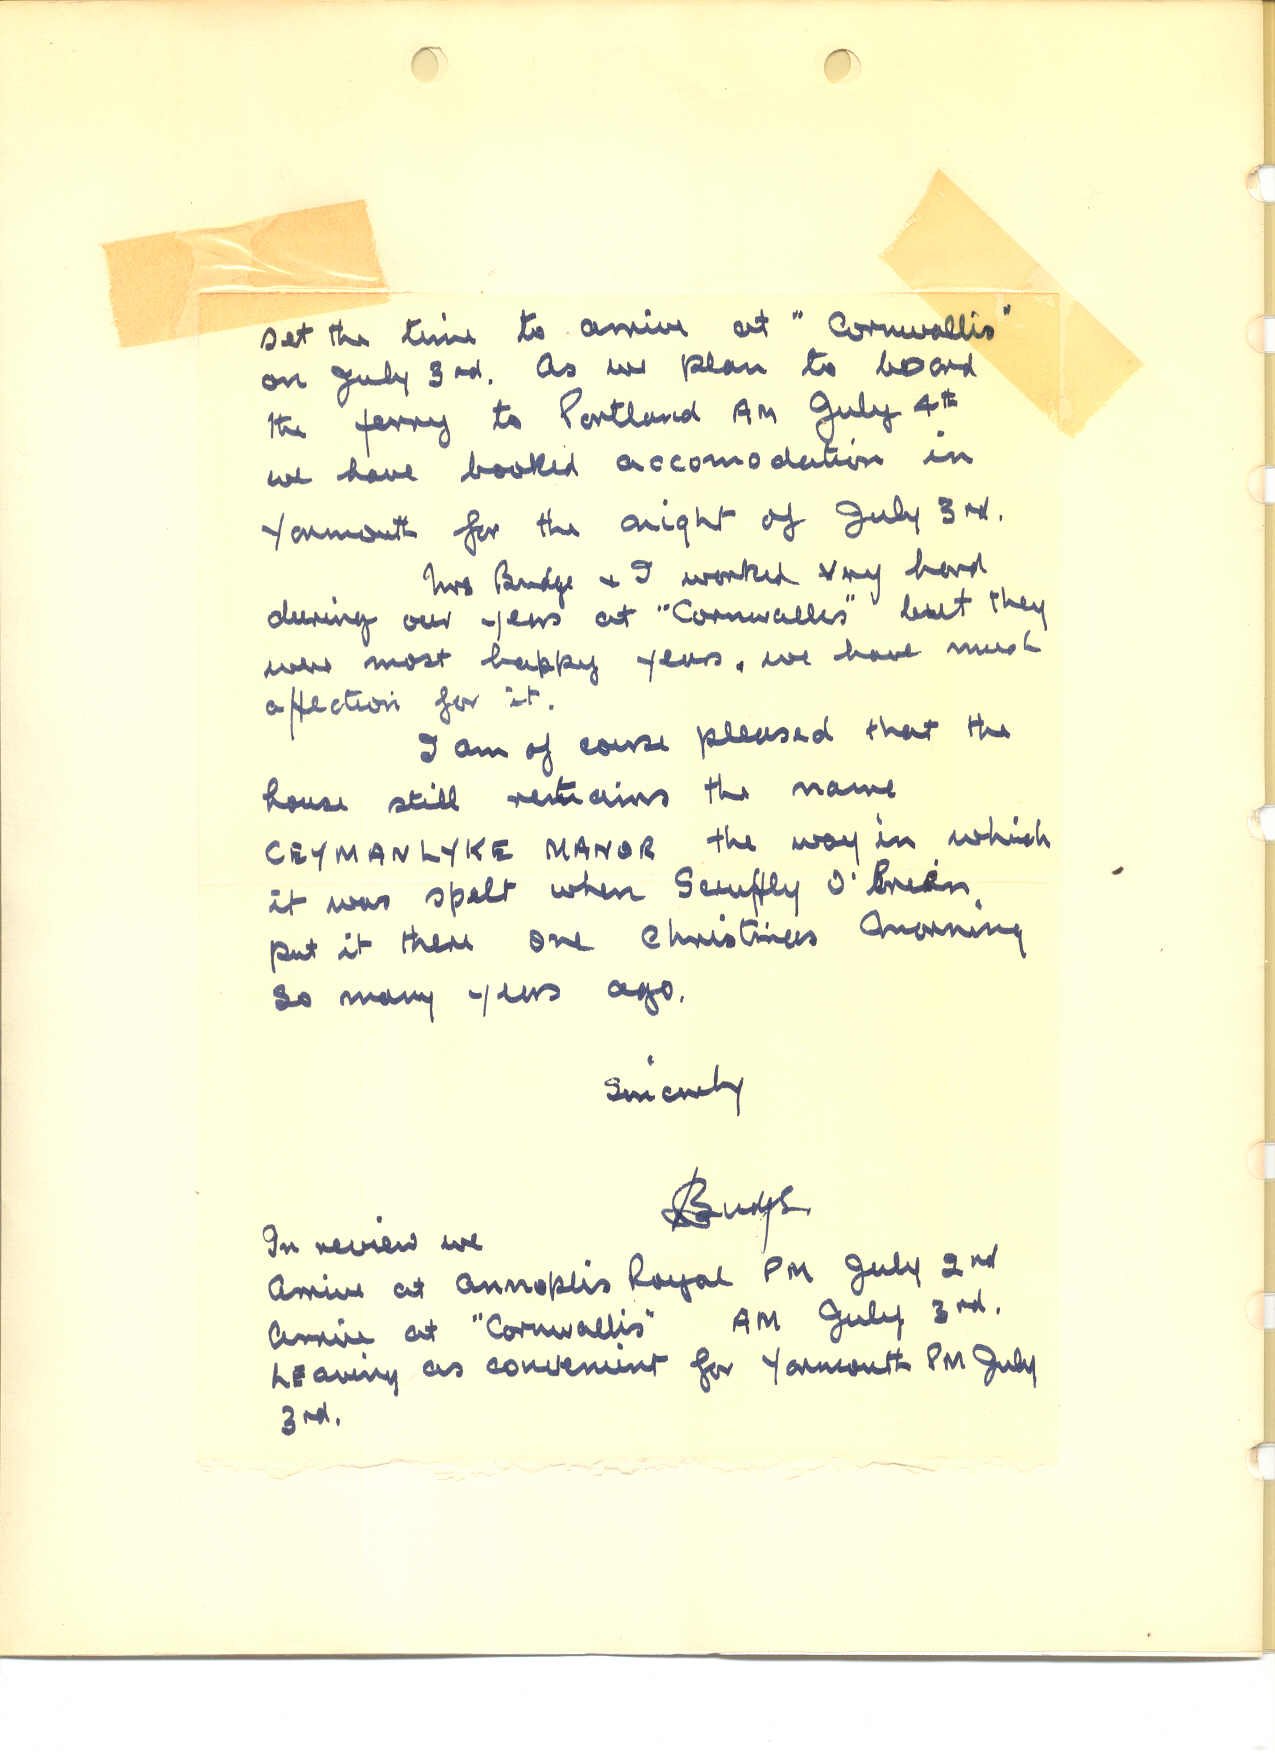 set the time to arrive at "Cornwallis"
on July 3rd. As we plan to board
the ferry to Portland AM July 4th
we have booked accomodation in
Yarmouth for the night of July 3rd.
Mrs Budge + I worked very hard
during our years at "Cornwallis" but they
were most happy years. we have much
affection for it.
I am of course pleased that the
house still remains the name
CEYMANLYKE MANOR the way in which
it was spelt when Scruffy O'Brien
put it there one Christmas morning
so many years ago.
Sincerely
Budge.
In review we
Arrive at Annoplis Royal PM July 2nd
Arrive at "Cornwallis" AM July 3rd.
Leaving as convenient for Yarmouth PM July
3rd.